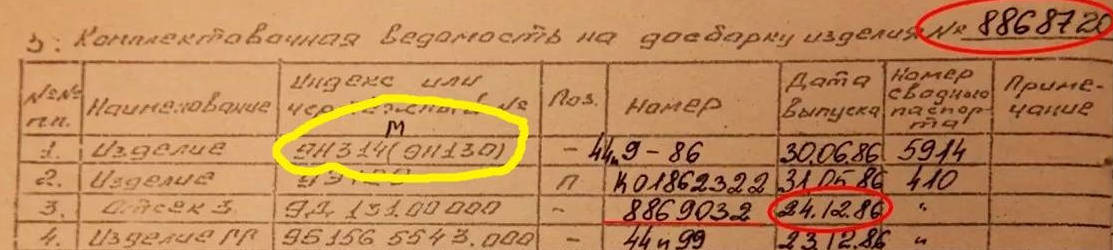 3. Комплектовочная ведомость на досборку изделия № 8868720
№№ п.п. Наименование Индекс или чертежный № Поз. Номер Дата выпуска Номер сводного паспорта Примечание
М
1. Изделие 9Н314(9Н130) - 44н9-86 30.06.86 5914
2. Изделие П К01862322 31.05.86 410
3. Отсек 3 9Д.131.00000 - 8869032 24.12.86 "
4. Изделие ГГ 95156 5543.000 - 44н99 23.12.86 "